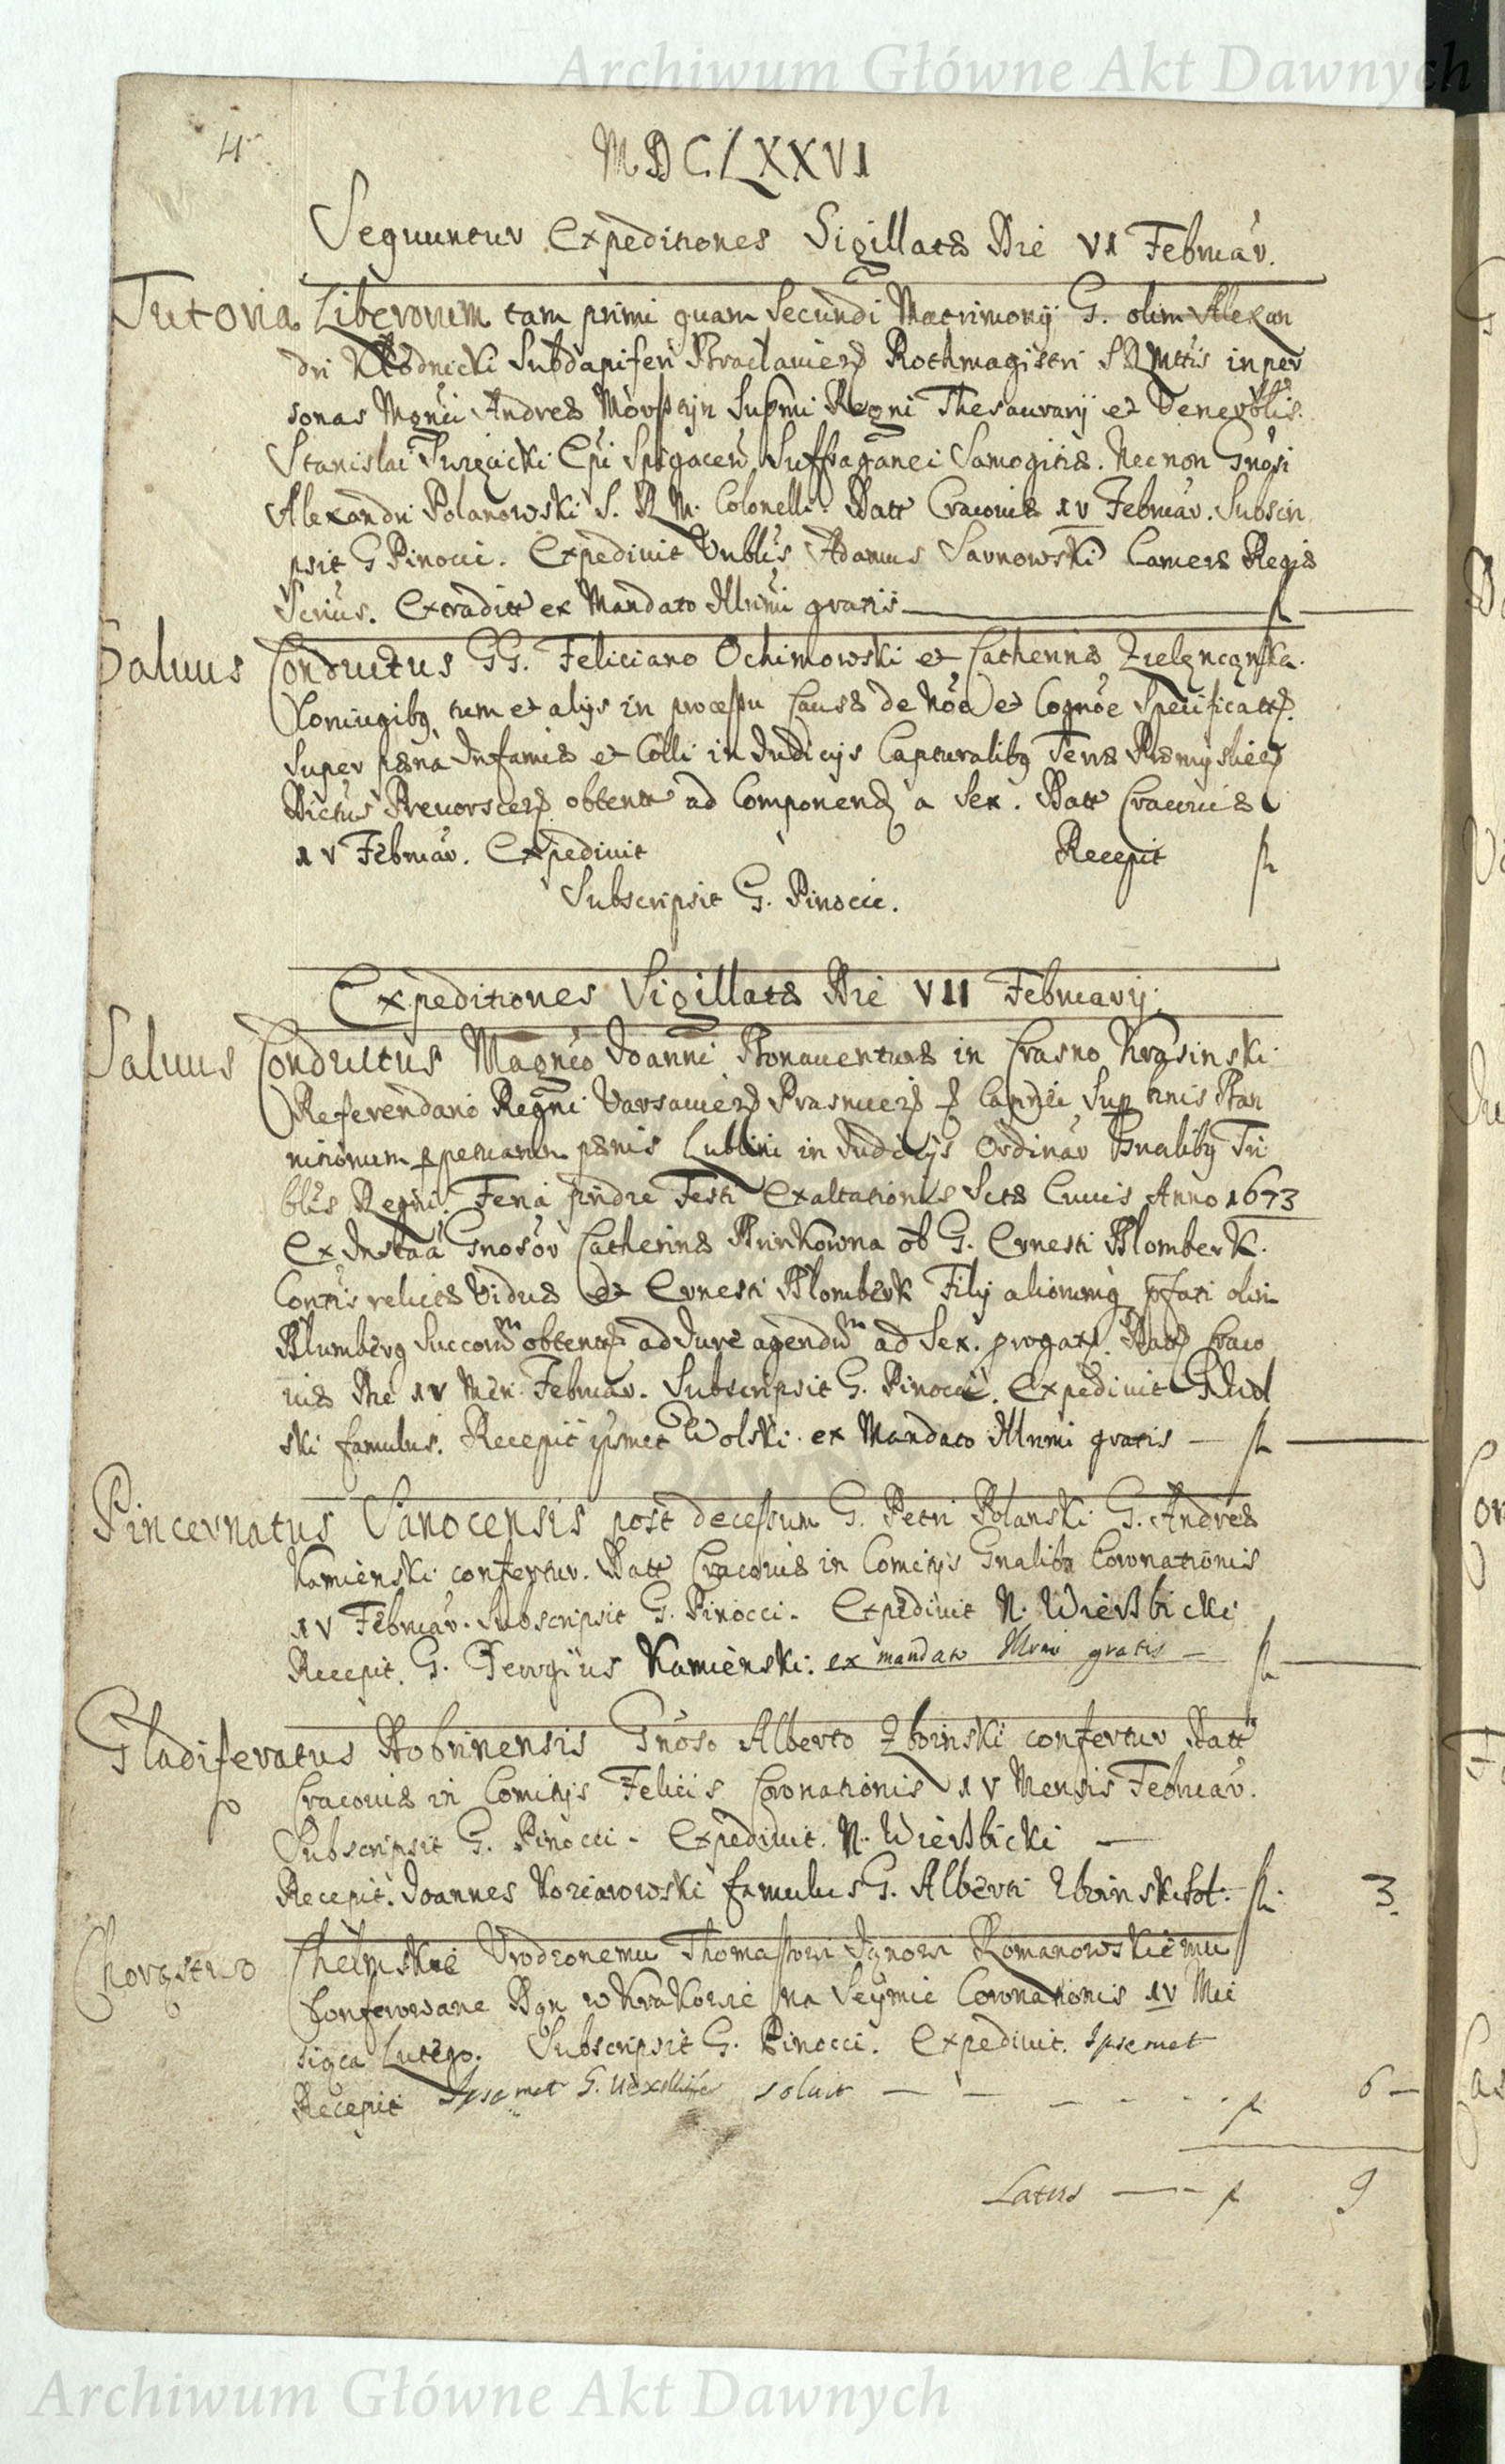 Archiwum Główne Akt Dawnych
4
MDCLXXVI
Sequuntur Expeditiones Sigillatæ Die VI Februar.
Tutoria Liberorum tam primi quam Secundi Matrimonij G. olim Alexan
dri Kłodnicki Subdapiferi Bracłavien Rothmagistri S R Mttis in per
sonas Mgnci Andreæ Morsztyn Supmi Regni Thesaurarij et Venerblis
Stanislai Epi Spigacen Suffraganei Samogitiæ. Nec non Gnosi
Alexandri Polanowski S. R M. Colonelli. Datt Cracoviæ IV Februar. Subscri
psit G Pinocci. Expedivit Vnblis Adamus Sarnowski Cameræ Regiæ
Scrius. Extraditt ex Mandato Illrimi gratis fl
Salvus Conductus GG. Feliciano Ochimowski et Catherinæ
Coniugibq tum et alijs in processu Causæ de Noe et Cognoe Specificatt
Super pæna Infamiæ et Colli in Judicijs Capturalibq Terræ Præmyslien
Districtus Prevorscen obtentt ad Componend a Sex. Datt Cracoviæ
IV Februar. Expedivit Recepit fl
Subscripsit G. Pinocci.
Expeditiones Sigillatæ Die VII Februarij.
Salvus Conductus Magnco Joanni Bonaventuræ in Crasno Krasinski
Referendario Regni Varsavien Prasnicen Sup binis Ban
nitionum perpetuarum pænis Lublini in Judicijs Ordinar Gnalibq Tri
blis Regni. Feria Festi Exaltationis Sctæ Crucis Anno 1673
Ex Instaa Gnosor Catherinæ ob G. Ernesti Blomberk
relictæ Viduæ et Ernesti Blomberk Filij aliorumq pfati olim
Blumberg Succorum obtent ad Jure agendum ad Sex. prorogat. Datt Craco
viæ Die IV Men Februar. Subscripsit G. Pinocci. Expedivit
ski famulus. Recepit ipsmet Wolski ex Mandato Illrimi gratis — fl
Pincernatus Sanocensis post decessum G. Petri Bolanski G. Andreæ
Kamienski confertur. Datt Cracoviæ in Comitijs Gnalibq Coronationis
IV Februar. Subscripsit G. Pinocci. Expedivit N. Wierzbicki
Recepit. G. Georgius Kamienski. ex mandato Illrmi gratis — fl
Gladiferatus Dobrinensis Gnoso Alberto Zboinski confertur Datt
Cracoviæ in Comitijs Felicis Coronationis IV Mensis Februar.
Subscripsit G. Pinocci. Expedivit. N. Wierzbicki —
Recepit. Joannes Koziarowski famulus G. Alberti Zboinski sol. fl. 3.
Chorąstwo Chełmskie Vrodzonemu Thomaszowi Romanowskiemu
Conferowane Dan w Krakowie na Seymie Coronationis IV Mie
siąca Lutego. Subscripsit G. Pinocci. Expedivit. Ipsemet
Recepit Ipsemet G. Vexillifer soluit — — fl 6 —
Latus — fl 9
Archiwum Główne Akt Dawnych